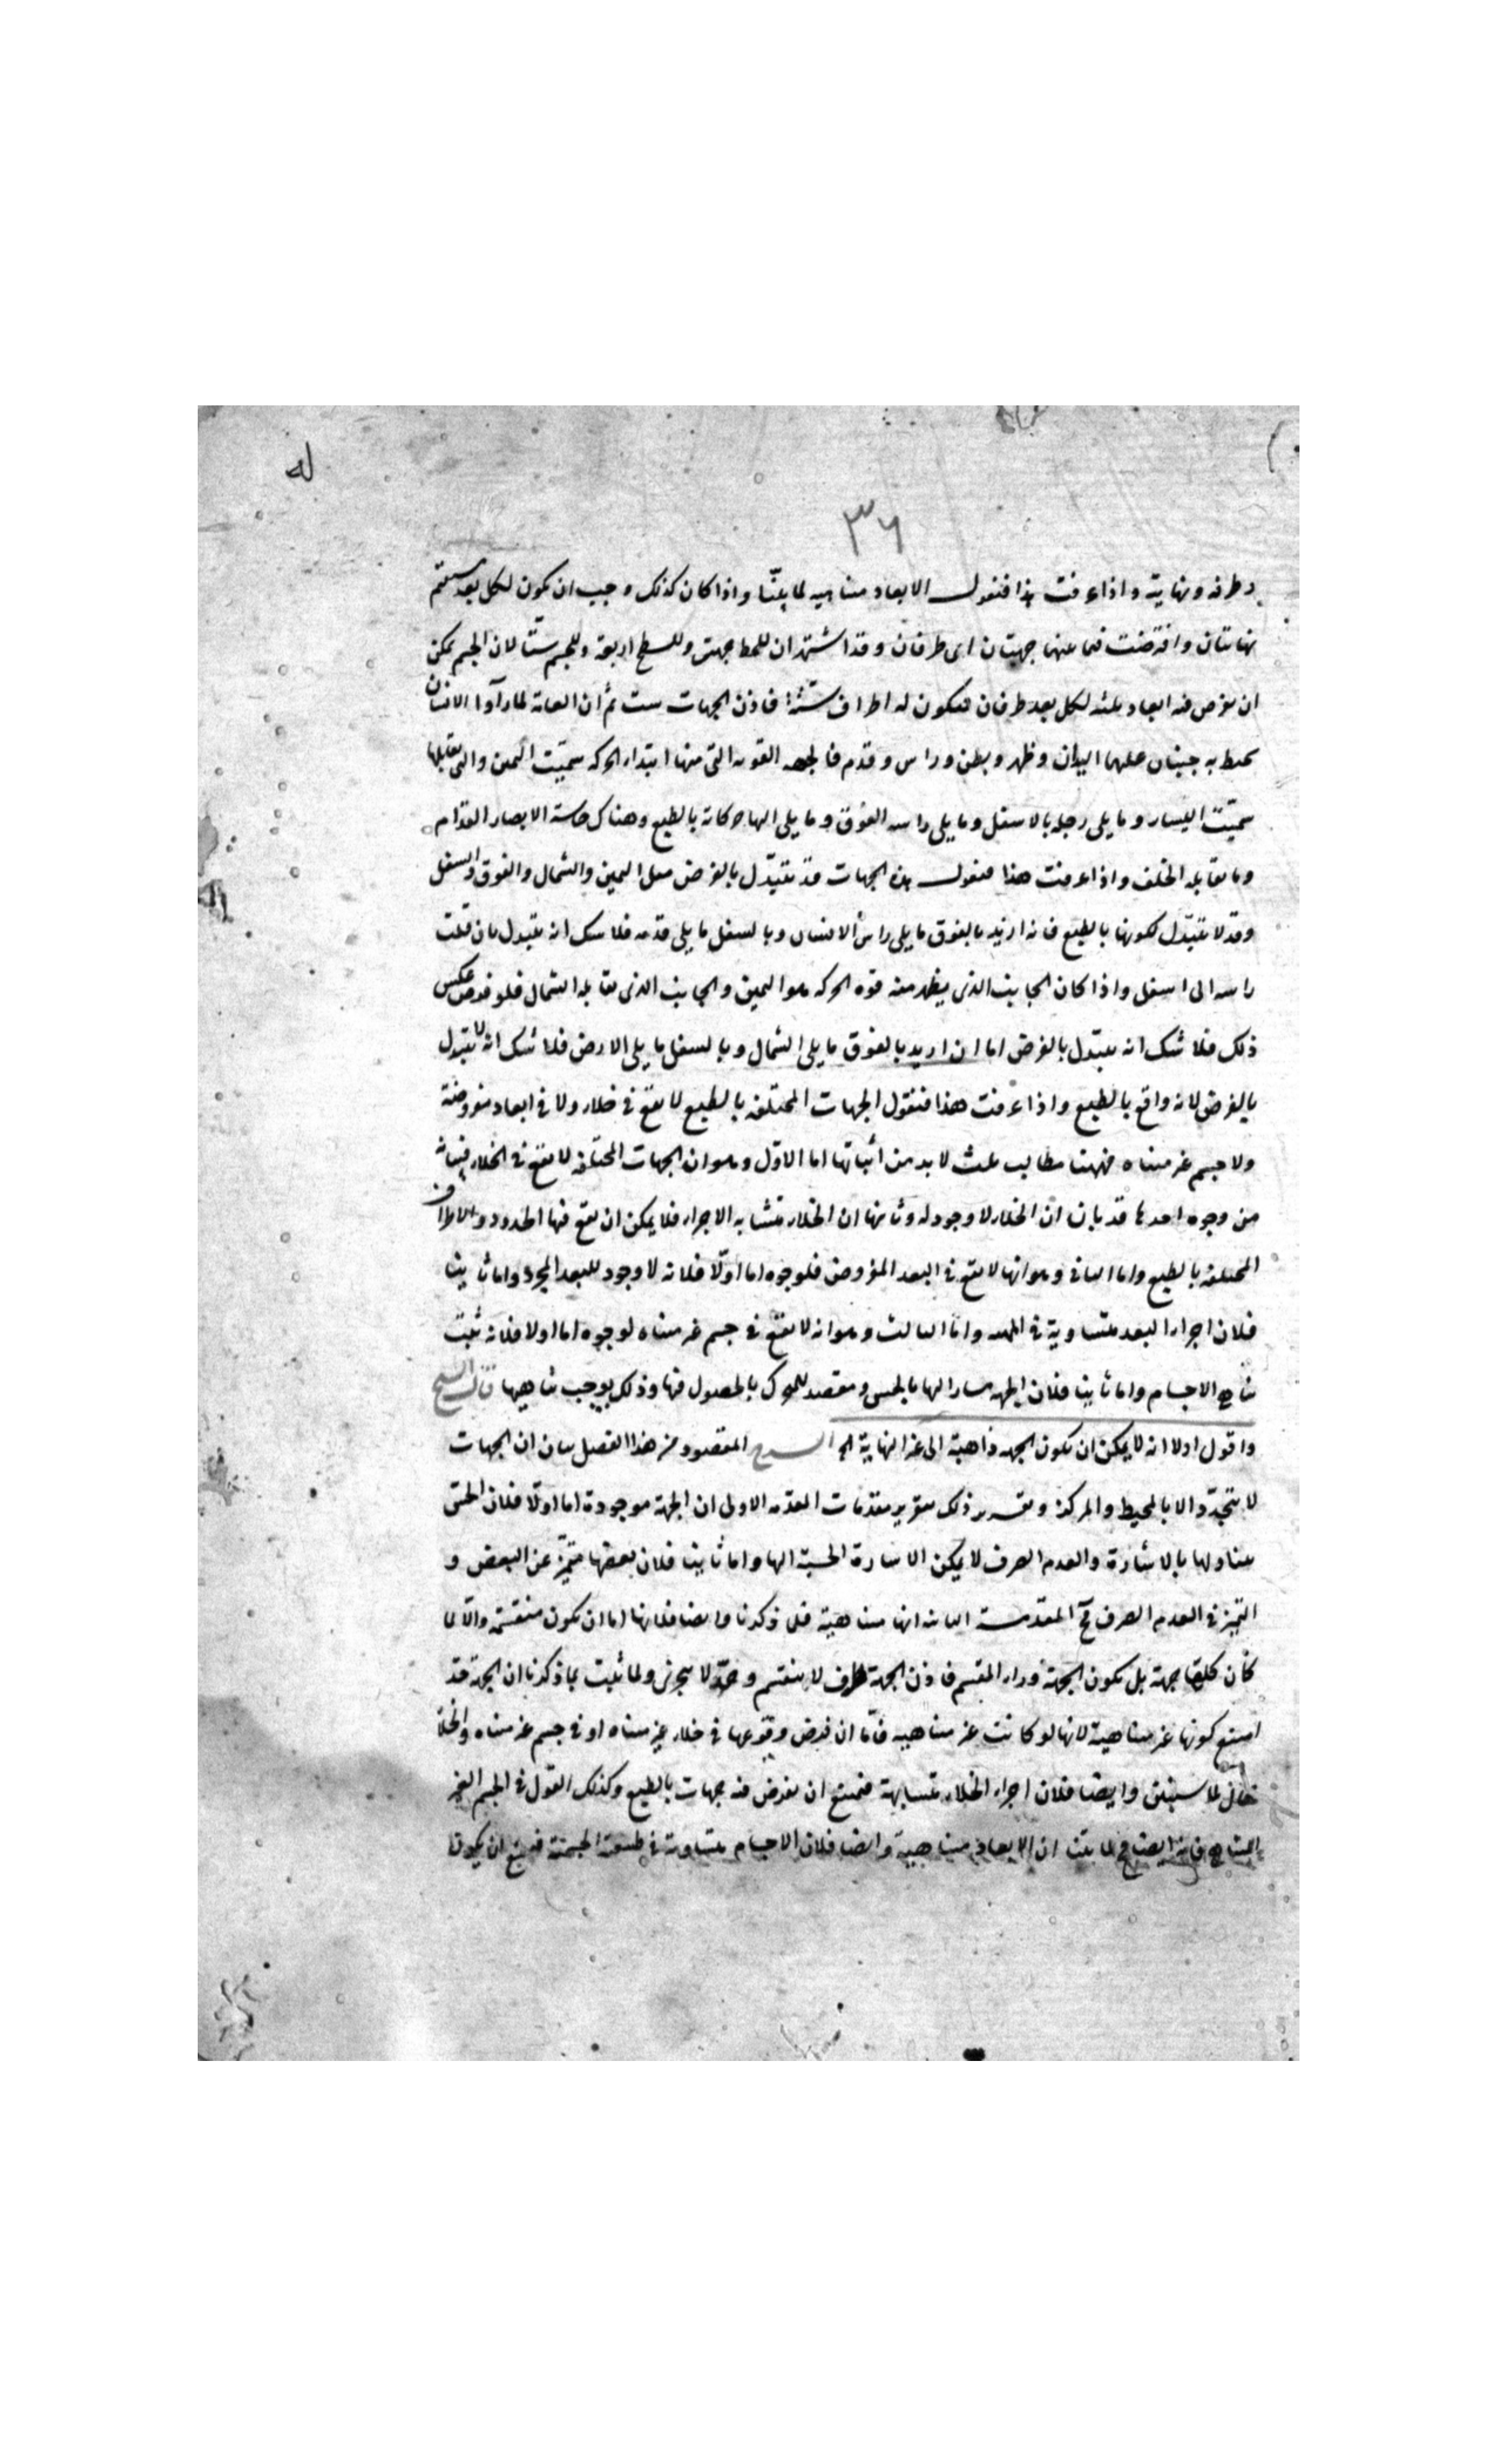 له
٣٦
وطرفه ونهاية واذا عرفت هذا فنقول الابعاد متناهيه لما بيّنّا واذا كان كذلك وجب ان يكون لكل بعد مستقيم
نهايتان وافترضت فيما عنهما جهتان اى طرفان وقد اشتهر ان للخط جهتين وللسطح اربعة وللجسم ستّا لان الجسم يمكن
ان يفرض فيه ابعاد ثلثه لكل بعد طرفان فيكون له اطراف ستة فاذن الجهات ست ثم ان العامة لما رآوا الانسان
يحيط به جنبان عليهما اليدان وظهر وبطن وراس وقدم فالجهه القويه التى منها ابتداء الحركه سمّيت اليمين والتى تقابلها
سمّيت اليسار وما يلى رجله بالاسفل وما يلى راسه الفوق وما يلى اليها حركاته بالطبع وهناك حاسة الابصار القدام
وما يقابله الخلف واذا عرفت هذا فنقول هذه الجهات قد تتبدّل بالفرض مثل اليمين والشمال والفوق والسفل
وقد لا تتبدّل لكونها بالطبع فانه اريد بالفوق ما يلى راس الانسان وبالسفل ما يلى قدمه فلا شك انه يتبدل بان قلبت
راسه الى اسفل واذا كان الجانب الذى يظهر منه قوه الحركه هو اليمين والجانب الذى يقابله الشمال فلو فرض عكس
ذلك فلا شك انه يتبدّل بالفرض اما ان اريد بالفوق ما يلى الشمال وبالسفل ما يلى الارض فلا شك انه لا يتبدل
بالفرض لانه واقع بالطبع واذا عرفت هذا فنقول الجهات المختلفه بالطبع لا تقع فى خلاء ولا فى ابعاد مفروضة
ولا جسم غير متناه فههنا مطالب ثلث لا بد من اثباتها اما الاوّل وهو ان الجهات المختلفه لا تقع فى الخلاء فبيانه
من وجوه احدها قد بان ان الخلاء لا وجود له وثانيها ان الخلاء متشابه الاجزاء فلا يمكن ان تقع فيها الحدود والاطراف
المختلفه بالطبع واما الثانى وهو انها لا تقع فى البعد المفروض فلوجوه اما اوّلا فلانه لا وجود للبعد المجرد واما ثانيا
فلان اجزاء البعد متساوية فى الماهيه واما الثالث وهو انه لا تقع فى جسم غير متناه لوجوه اما اولا فلانه ثبت
تناهى الاجسام واما ثانيا فلان الجهه مشار اليها بالحس ومقصد للمتحرك بالحصول فيها وذلك يوجب تناهيها قال الشيخ
واقول اولا انه لا يمكن ان تكون الجهه ذاهبة الى غير النهاية الخ الشرح المقصود من هذا الفصل بيان ان الجهات
لا تتحدّد الا بالمحيط والمركز وتقرير ذلك بتقرير مقدمات المقدمه الاولى ان الجهة موجودة اما اولا فلان الحسّ
يتناولها بالاشارة والعدم الصرف لا يمكن الاشارة الحسية اليها واما ثانيا فلان بعضها متميّز عن البعض و
التميز فى العدم الصرف مح المقدّمـة الثانيه انها متناهية فلما ذكرنا وايضا فلانها اما ان تكون منقسمة والّا لما
كان كلها جهة بل تكون الجهة وراء المقسم فاذن الجهة طرف لا ينقسم وحدّ لا يتجزى ولما ثبت بما ذكرنا ان الجهة حدّ
امتنع كونها غير متناهية لانها لو كانت غير متناهيه فامّا ان فرض وقوعها فى خلاء غير متناه او فى جسم غير متناه والخلا
محال لما سنبيّن وايضا فلان اجزاء الخلاء متشابهة فيمتنع ان يفرض فيه جهات بالطبع وكذلك القول فى الجسم الغير
المتناهى فانه ايضا مح لما بيّنا ان الابعاد متناهية وايضا فلان الاجسام متساوية فى طبيعة الجسمية فيمتنع ان يكون